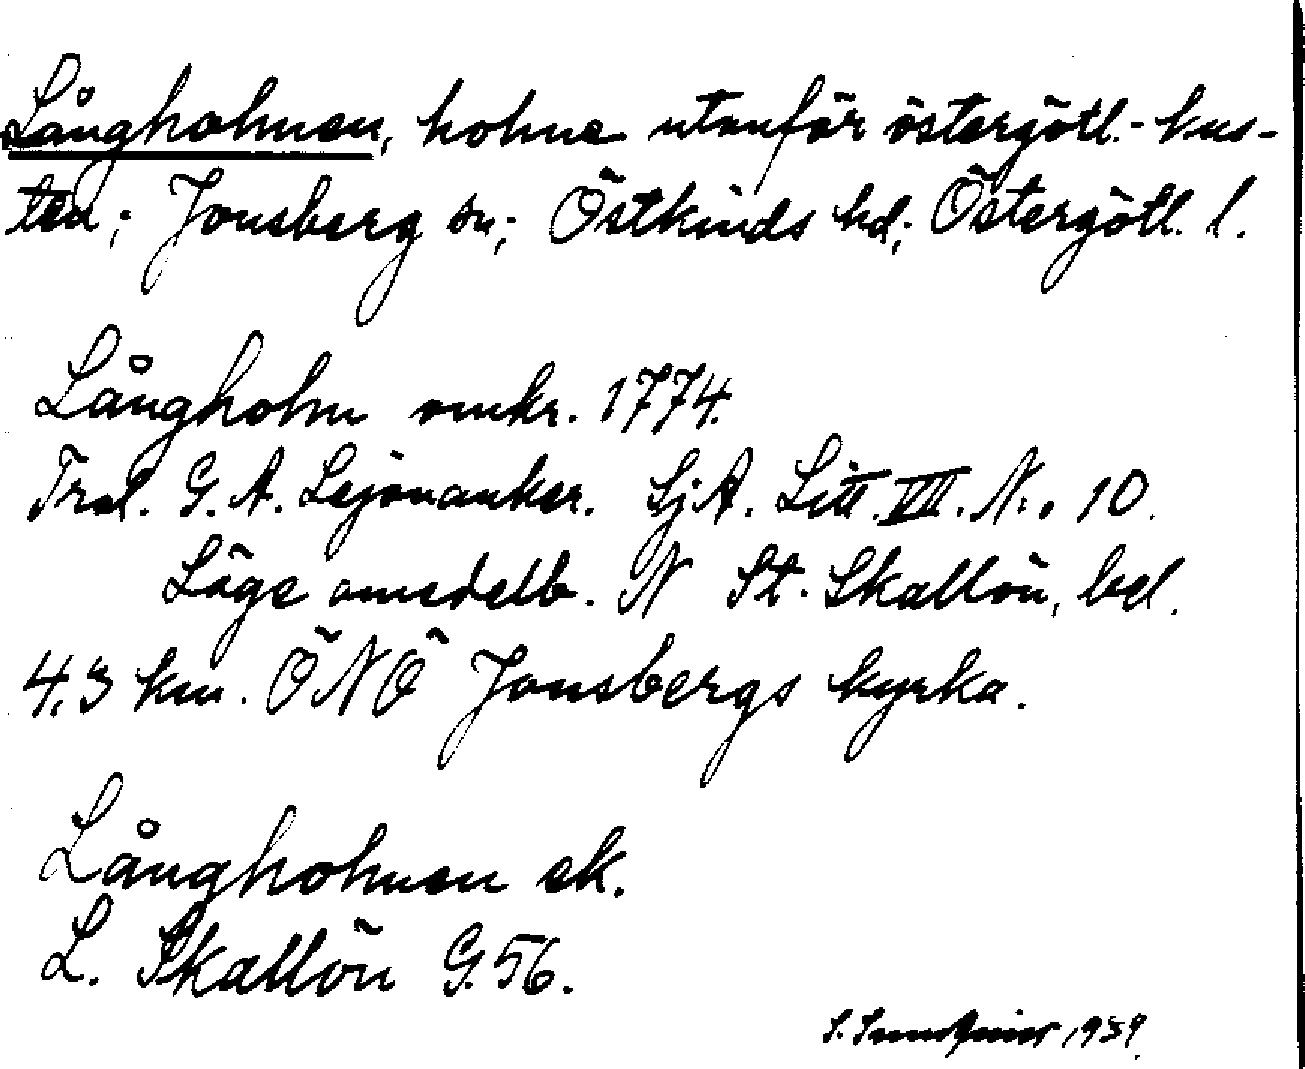 Långholmen, holme utanför östergötl.-kus-
ten; Jonsberg sn; Östkinds hd; Östergötl. l.
Långholm omkr. 1774.
Trol. G. A. Lejonanker. SjA. Litt. VII. N:o 10.
Läge omedelb. N St. Skallön, bel.
4,3 km. ÖNÖ Jonsbergs kyrka.
Långholmen ek.
L. Skallön G. 56.
S. Sundquist 1939.